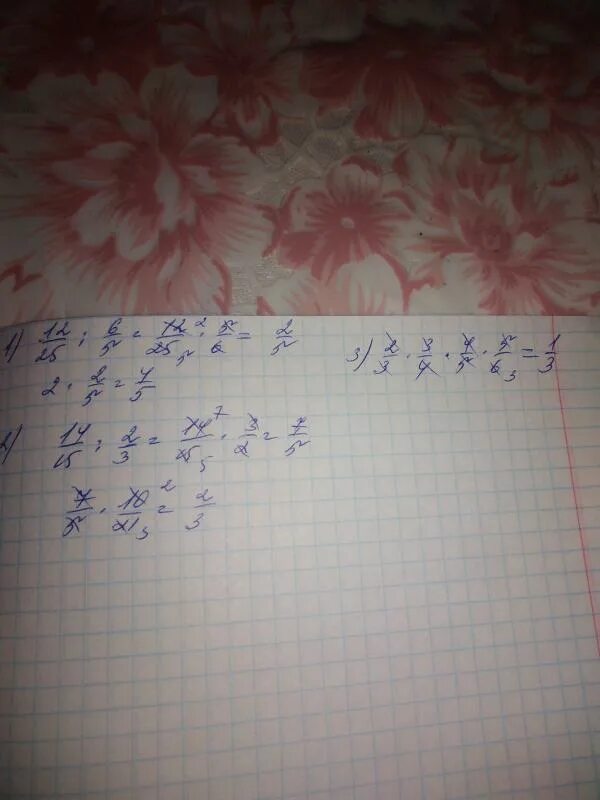 1) 12/25 : 6/5 = 12/25 5 2 · 5/6 = 2/5
2 · 2/5 = 4/5
2) 14/15 : 2/3 = 14/15 5 7 · 3/2 = 7/5
7/5 · 10/21 3 2 = 2/3
3) 2/3 · 3/4 · 4/5 · 5/6 3 = 1/3